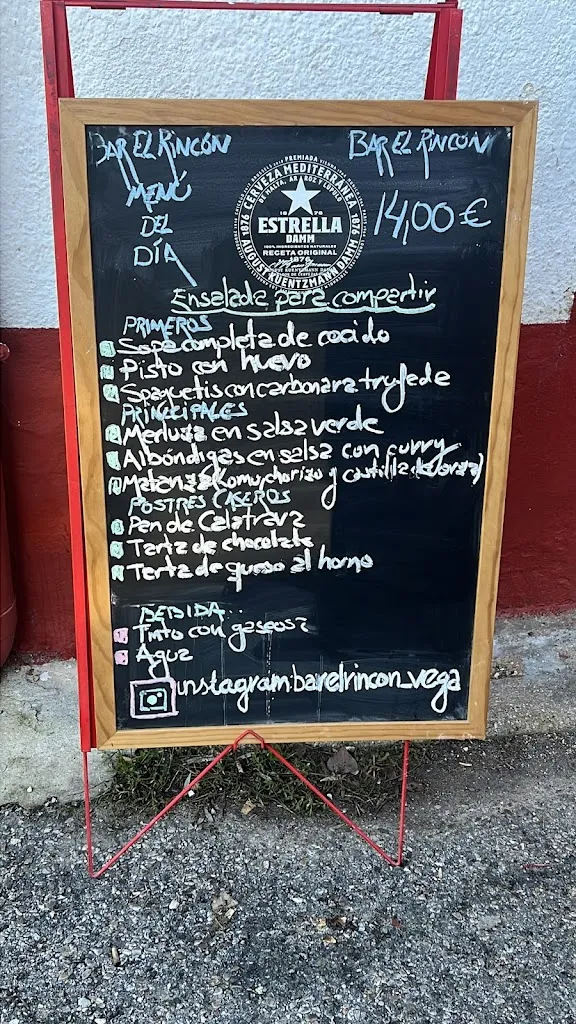 BAR EL RINCÓN
BAR EL RINCÓN
MENÚ
DEL
DÍA
14,00 €
PREMIADA
CERVEZA MEDITERRÁNEA
DE MALTA, ARROZ Y LÚPULO
1876
1876
ESTRELLA
DAMM
100% INGREDIENTES NATURALES
RECETA ORIGINAL
1876
AUGUST KUENTZMANN DAMM
Ensalada para compartir
PRIMEROS
Sopa completa de cocido
Pisto con huevo
Spaguetis con carbonara trufada
PRINCIPALES
Merluza en salsa verde
Albóndigas en salsa con curry
Matanza (lomo, chorizo y costilla de orza)
POSTRES CASEROS
Pan de Calatrava
Tarta de chocolate
Tarta de queso al horno
BEBIDA..
Tinto con gaseosa
Agua
instagram:barelrincon_vega